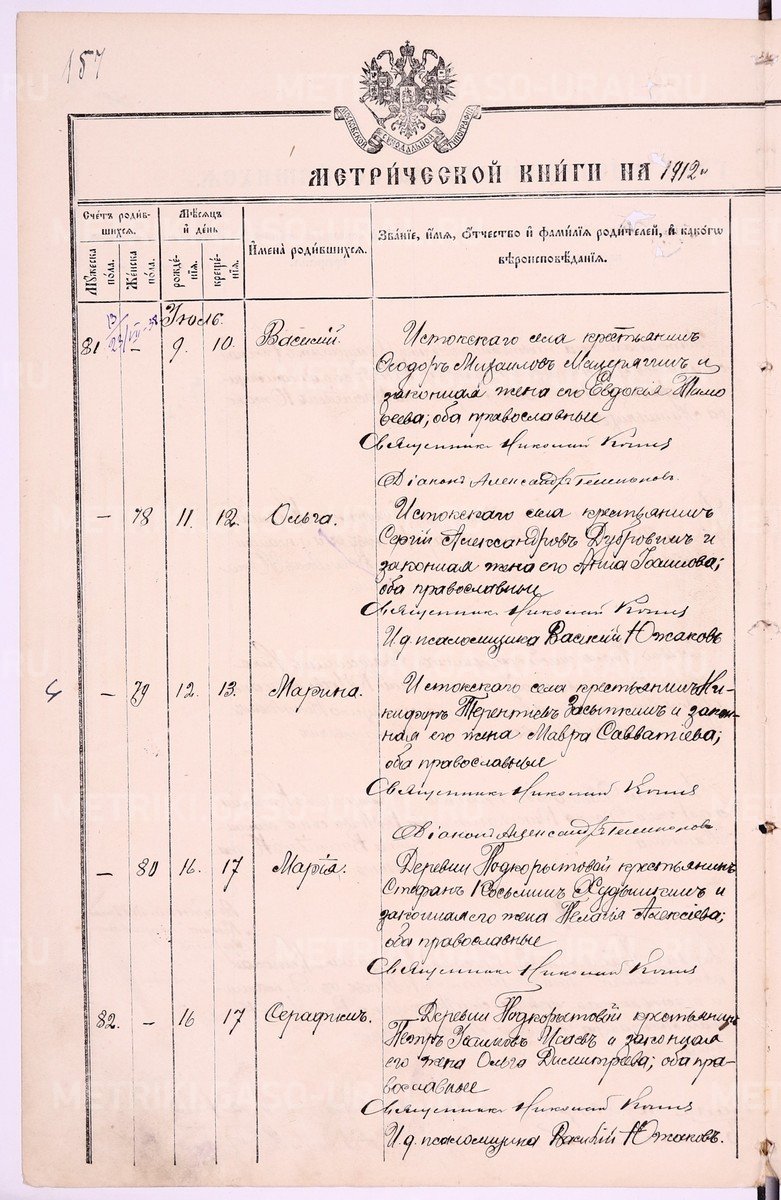 157
МОСКОВСКОЙ СѴНОДАЛЬНОЙ ТИПОГРАФІИ
МЕТРИ́ЧЕСКОЙ КНИ́ГИ НА 1912 г.
Сче́тъ роди́вшихся.
Мѣ́сяцъ и́ де́нь
И҆мена̀ роди́вшихся.
Зва́ніе, и҆́мя, ѻ҆́тчество и҆ фами́лія роди́телей, и҆ како́гѡ вѣроисповѣ́данія.
Му́жеска по́ла.
Же́нска по́ла.
рожде́нія.
креще́нія.
Іюль.
81 – 9. 10. Василій.
Истокскаго села крестьянинъ
Ѳеодоръ Михаиловъ Мещерягинъ и
законная жена его Евдокія Тимо
ѳеева; оба православные
Священникъ Николай
Діаконъ Александръ
– 78 11. 12. Ольга.
Истокскаго села крестьянинъ
Сергій Александровъ Дубровинъ и
законная жена его Анна Іоаннова;
оба православные
Священникъ Николай
И. д. псаломщика Василій Южаковъ
– 79 12. 13. Марина.
Истокскаго села крестьянинъ Ни-
кифоръ Терентіевъ Засыпкинъ и закон-
ная его жена Мавра Савватіева;
оба православные
Священникъ Николай
Діаконъ Александръ
– 80 16. 17 Марія.
Деревни Подкорытовой крестьянинъ
Стефанъ Косьминъ и
законная его жена Пелагія Алексіева;
оба православные
Священникъ Николай
82. – 16 17 Серафимъ.
Деревни Подкорытовой крестьянинъ
Петръ Іоанновъ Исаевъ и законная
его жена Ольга Димитріева; оба пра-
вославные
Священникъ Николай
И. д. псаломщика Василій Южаковъ.